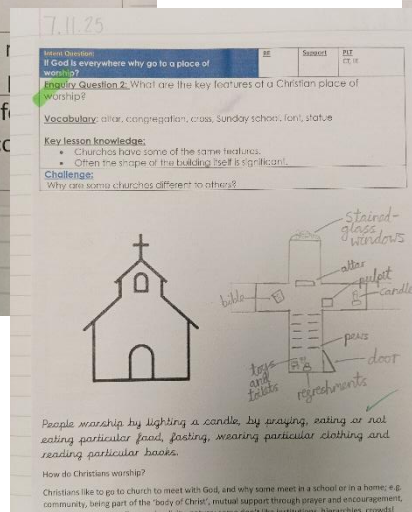 7.11.25
Intent Question:
If God is everywhere why go to a place of
worship?
RE
Support
PLT
CT, IE
Enquiry Question 2: What are the key features of a Christian place of
worship?
Vocabulary: altar, congregation, cross, Sunday school, font, statue
Key lesson knowledge:
• Churches have some of the same features.
• Often the shape of the building itself is significant.
Challenge:
Why are some churches different to others?
Stained-
glass
windows
altar
pulpit
candle
bible
pews
door
toys
and
toilets
refreshments
People worship by lighting a candle, by praying, eating or not
eating particular food, fasting, wearing particular clothing and
reading particular books.
How do Christians worship?
Christians like to go to church to meet with God, and why some meet in a school or in a home; e.g.
community, being part of the 'body of Christ', mutual support through prayer and encouragement,